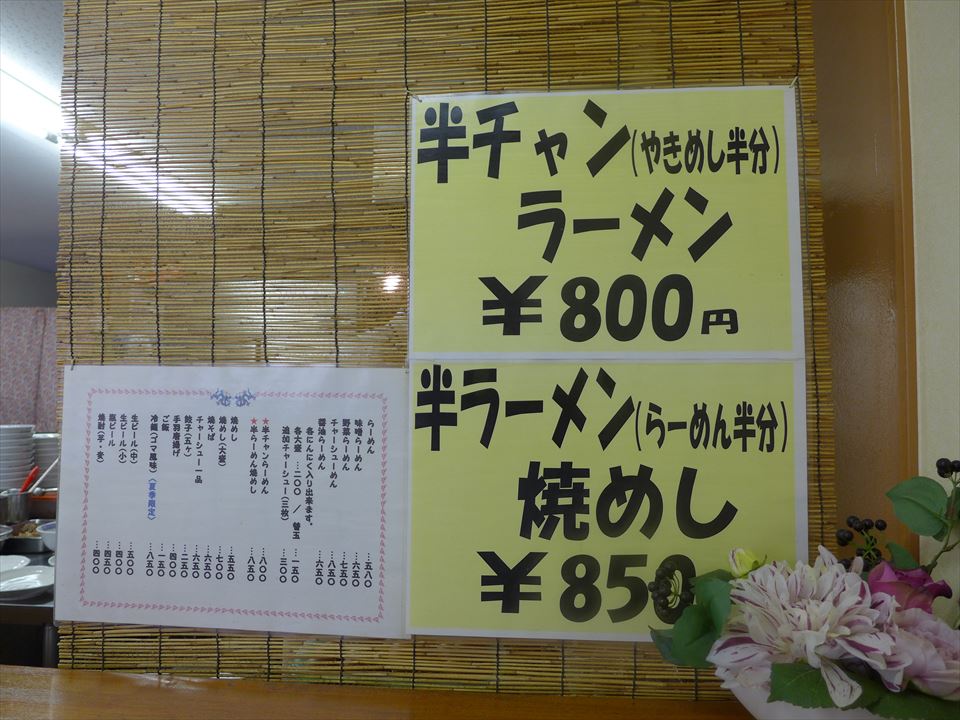 半チャン(やきめし半分)
ラーメン
¥800円
半ラーメン(らーめん半分)
焼めし
¥850
らーめん …五八〇
味噌らーめん …六五〇
野菜らーめん …七五〇
チャーシューめん …八五〇
醤油らーめん …六五〇
各にんにく入り出来ます。
各大盛 …二〇〇 / 替玉 …一五〇
追加チャーシュー(三枚) …三〇〇
★半チャンらーめん …八〇〇
★半らーめん焼めし …八五〇
焼めし …五五〇
焼めし(大盛) …七〇〇
焼そば …六五〇
チャーシュー一品 …六五〇
餃子(五ヶ) …二五〇
手羽唐揚げ …四〇〇
ご飯 …一五〇
冷麺(ゴマ風味)〈夏季限定〉 …八五〇
生ビール(中) …五〇〇
生ビール(小) …四〇〇
瓶ビール
焼酎(芋・麦) …四〇〇